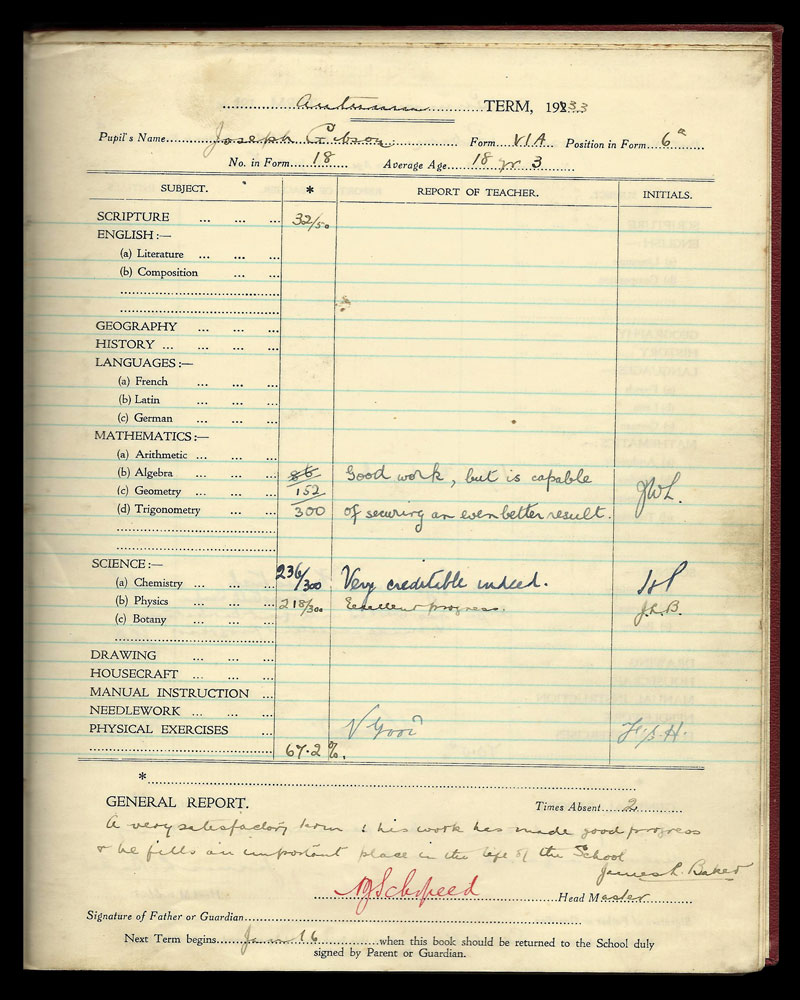 Autumn TERM, 1933
Pupil's Name Joseph Gibson Form VIA Position in Form 6a
No. in Form 18 Average Age 18 yr 3
SUBJECT. * REPORT OF TEACHER. INITIALS.
SCRIPTURE ... ... ... 32/50
ENGLISH :—
(a) Literature ... ... ...
(b) Composition ... ...
GEOGRAPHY ... ... ...
HISTORY ... ... ... ...
LANGUAGES :—
(a) French ... ... ...
(b) Latin ... ... ...
(c) German ... ... ...
MATHEMATICS :—
(a) Arithmetic ... ... ...
(b) Algebra ... ... ... Good work, but is capable
(c) Geometry ... ... ... 152 JWL.
(d) Trigonometry ... ... 300 of securing an even better result.
SCIENCE :—
(a) Chemistry ... ... ... 236/300 Very creditable indeed.
(b) Physics ... ... ... 218/300 Excellent progress. J.L.B.
(c) Botany ... ... ...
DRAWING ... ... ...
HOUSECRAFT ... ... ...
MANUAL INSTRUCTION ...
NEEDLEWORK ... ... ...
PHYSICAL EXERCISES ... V Good F.B.H.
67.2 %.
*
GENERAL REPORT. Times Absent 2
A very satisfactory term : his work has made good progress
& he fills an important place in the life of the School
James L. Baker
Head Master
Signature of Father or Guardian
Next Term begins Jan 16 when this book should be returned to the School duly
signed by Parent or Guardian.